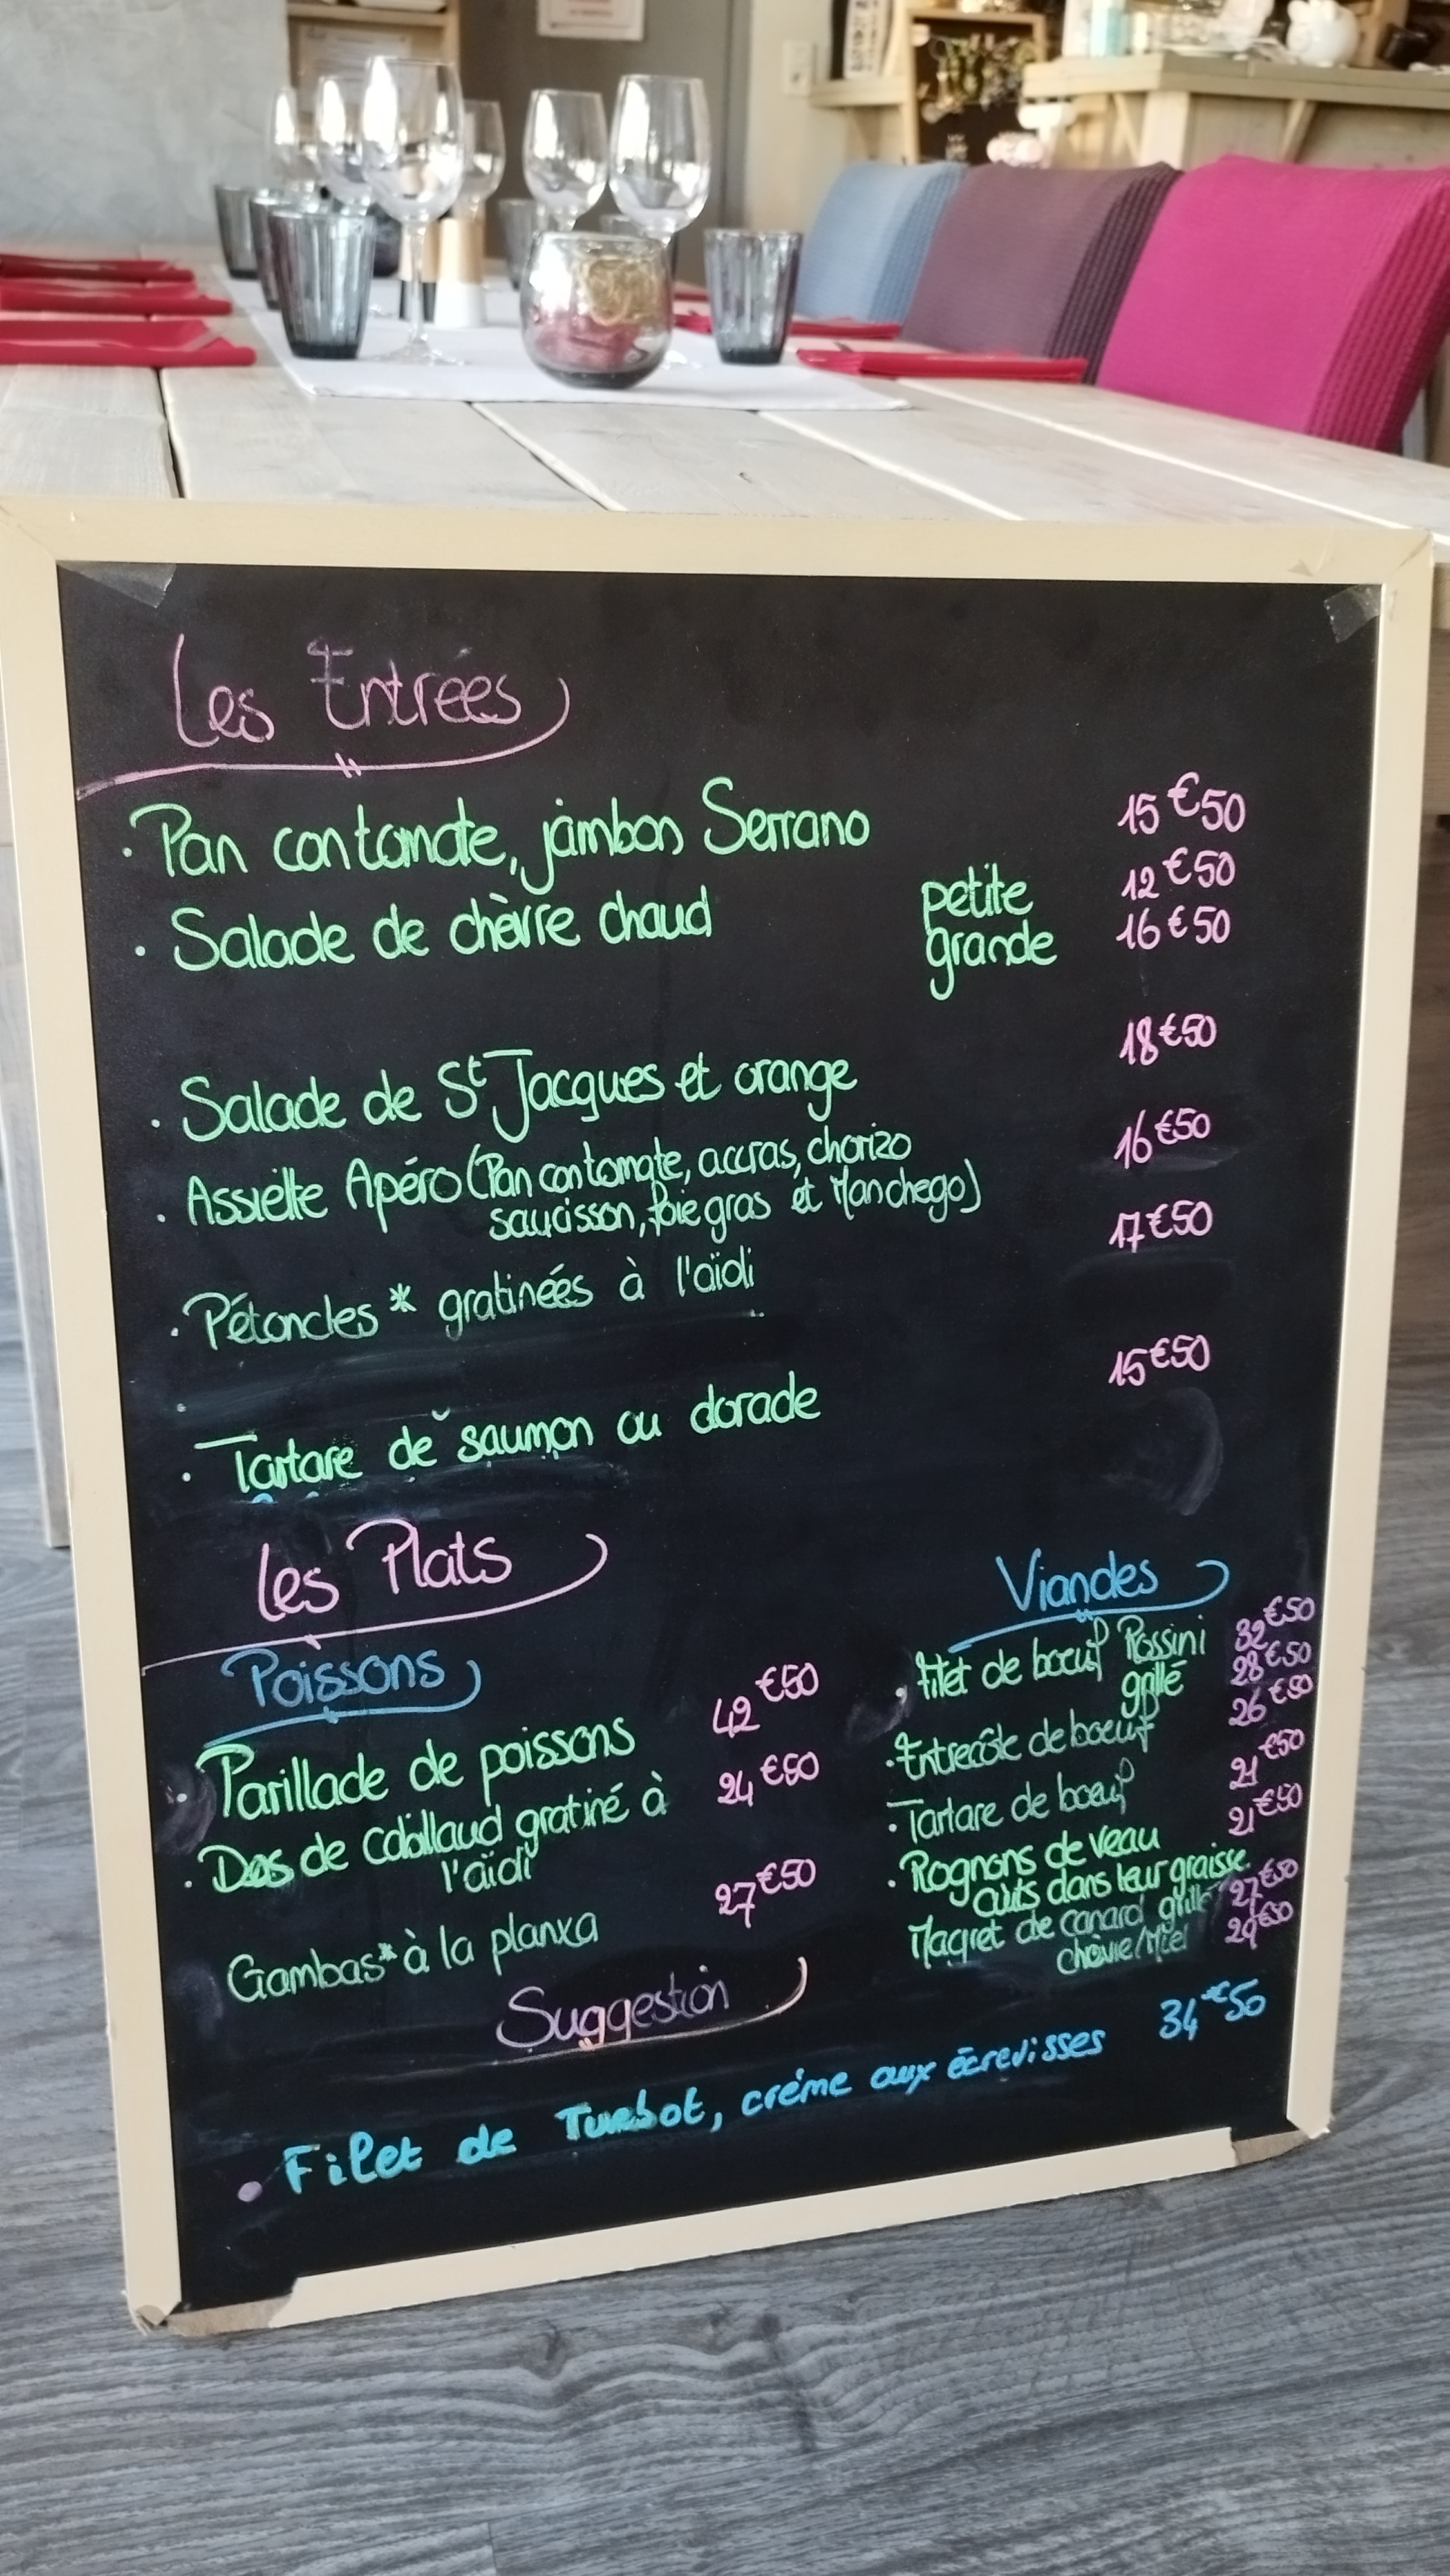 Les Entrées
· Pan con tomate, jambon Serrano 15€50
· Salade de chèvre chaud petite 12€50
grande 16€50
· Salade de St Jacques et orange 18€50
· Assiette Apéro (Pan con tomate, accras, chorizo 16€50
saucisson, foie gras et Manchego)
· Pétoncles * gratinées à l'aïoli 17€50
· Tartare de saumon ou dorade 15€50
Les Plats
Poissons
· Parillade de poissons 42€50
· Dos de Cabillaud gratiné à 24€50
l'aïoli
Gambas* à la planxa 27€50
Viandes
· Filet de boeuf Rossini 32€50
grillé 28€50
· Entrecôte de boeuf 26€50
· Tartare de boeuf 21€50
· Rognons de veau 21€50
cuits dans leur graisse
Magret de canard grillé 27€50
chèvre/Miel 29€50
Suggestion
· Filet de Turbot, crème aux écrevisses 34€50